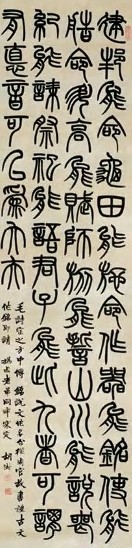 建邦能命龜田能施命作器能銘使能
造命升高能賦師旅能誓山川能說喪
紀能誄祭祀能語君子能此九者可謂
有德音可以為大夫
毛詩定之方中傳 銘說文
作銘即請 老弟同學 定 胡澍